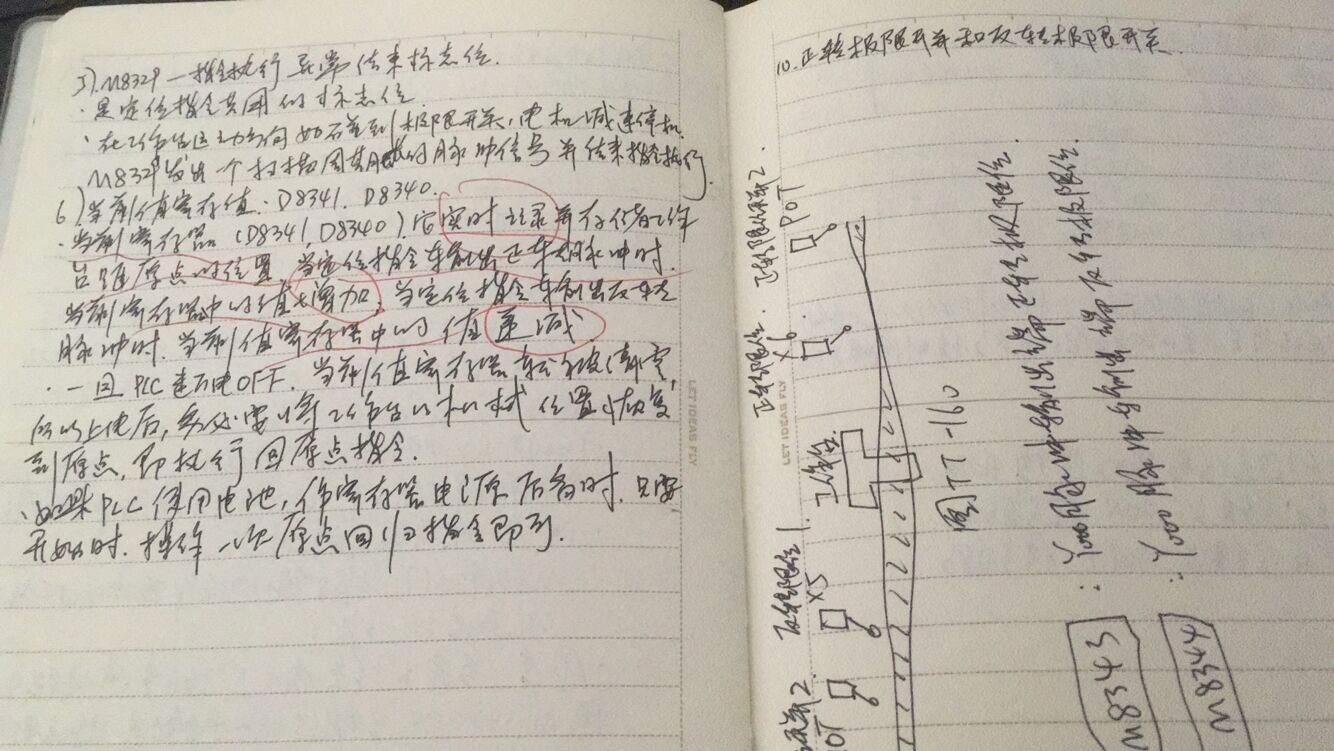 5) M8329 —指令执行异常结束标志位.
·是定位指令共用的标志位.
·在工作台运动方向如碰到极限开关,电机减速停机.
M8329发出一个扫描周期的脉冲信号并结束指令执行.
6)当前值寄存值:D8341. D8340.
·当前寄存器(D8341 D8340).它实时记录并存储着工作
台距原点的位置.当定位指令输出正转脉冲时.
当前寄存器中的值增加,当定位指令输出反转
脉冲时.当前值寄存器中的值递减.
·一旦PLC速断电OFF.当前值寄存器被清零,
所以上电后,务必要将工作台的机械位置恢复
到原点,即执行回原点指令.
·如果PLC使用电池,作寄存器电源后备时.只要
开始时.操作一次原点回归指令即可.
LET IDEAS FLY
10.正转极限开关和反转极限开关
LET IDEAS FLY
正转限位开关2.
POT
正转限位1.
X6
工作台.
反转限位1.
X5
2.
OT
图TT-160
M8343:Y000脉冲输出端正转极限位.
M8344:Y000脉冲输出端反转极限位